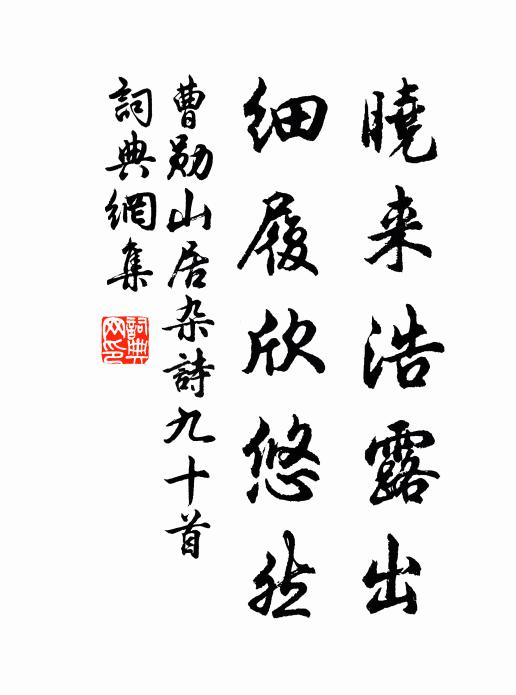 曉来浩露出
细履欣悠然
曹勋山居杂詩九十首
詞典網集
詞典网印